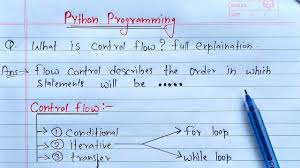 Python Programming
Q. What is control flow? full explaination
Ans → flow control describes the order in which
statements will be .....
Control flow:-
→ ① Conditional
→ ② Iterative → for loop
→ ③ transfer → while loop